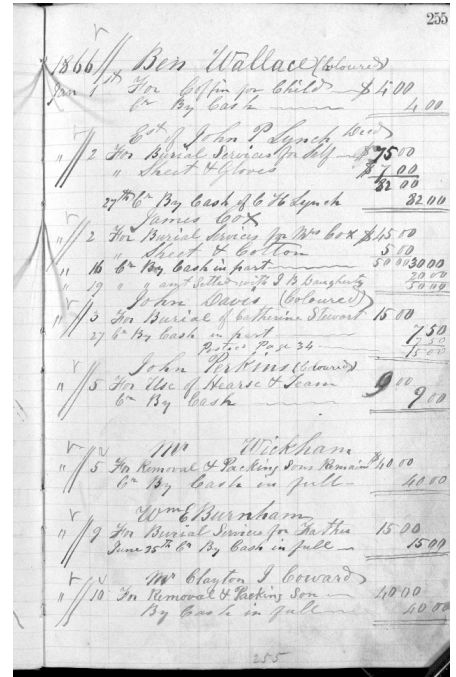 255
1866 Ben Wallace (Coloured)
Jan 1st For Coffin for Child $4 00
Cr By Cash 4 00
Est of John P Lynch Decd
" 2 For Burial Services for Self $75 00
" Sheet & Gloves $7 00
82 00
27th Cr By Cash of C H Lynch 82 00
James Cox
" 2 For Burial Services for Mrs Cox $45 00
" Sheet & Cotton 5 00
" 16 Cr By Cash in part 50 00 30 00
" 19 " " amt Settled with J B Daugherty 20 00
50 00
John Davis (Coloured)
" 3 For Burial of Catherine Stewart 15 00
27 Cr By Cash in part 7 50
Posted Page 34 7 50
15 00
John Perkins (Coloured)
" 5 For Use of Hearse & Team 9 00
Cr By Cash 9 00
Mr Wickham
" 5 For Removal & Packing Sons Remain $40 00
Cr By Cash in full 40 00
Wm E Burnham
" 9 For Burial Services for Father 15 00
June 25th Cr By Cash in full 15 00
Mr Clayton J Coward
" 10 For Removal & Packing Son 40 00
By Cash in full 40 00
255